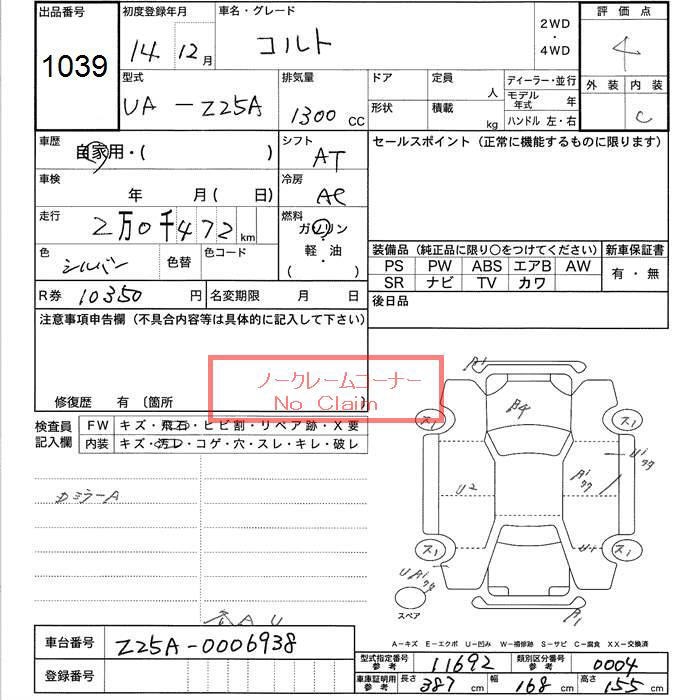 出品番号
1039
初度登録年月
14 12月
車名・グレード
コルト
2WD
・
4WD
評価点
4
外装 内装
C
型式
UA-Z25A
排気量
1300 CC
ドア
定員
人
形状
積載
kg
ディーラー・並行
モデル年式 年
ハンドル 左・右
車歴
自家用・( )
シフト
AT
セールスポイント (正常に機能するものに限ります)
車検
年 月( 日)
冷房
AC
走行
2万0千472km
燃料
ガソリン
・
軽・油
( )
色
シルバー
色替
色コード
装備品 (純正品に限り○をつけてください)
新車保証書
PS PW ABS エアB AW
SR ナビ TV カワ
有・無
R券 10350 円
名変期限 月 日
後日品
注意事項申告欄 (不具合内容等は具体的に記入して下さい)
ノークレームコーナー
No Claim
修復歴 有 〔箇所 〕
検査員記入欄
FW キズ・飛石・ヒビ割・リペア跡・X要
内装 キズ・汚レ・コゲ・穴・スレ・キレ・破レ
カミラーA
A1
A4
ス1
ス1
U2
ス1
ス1
スペア
A1
A-キズ E-エクボ U-凹み W-補修跡 S-サビ C-腐食 XX-交換済
車台番号
Z25A-0006938
登録番号
型式指定番号 参考 11692
類別区分番号 参考 0004
車庫証明用 参考 長さ 387 cm 幅 168 cm 高さ 155 cm